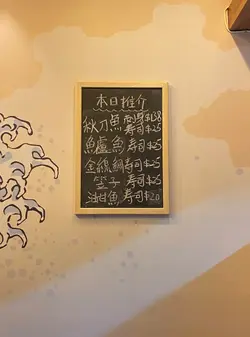 本日推介
秋刀魚 刺身$138
寿司$25
魚盧魚 寿司$25
金線鯛 寿司$25
竺子 寿司$25
油甘魚 寿司$20